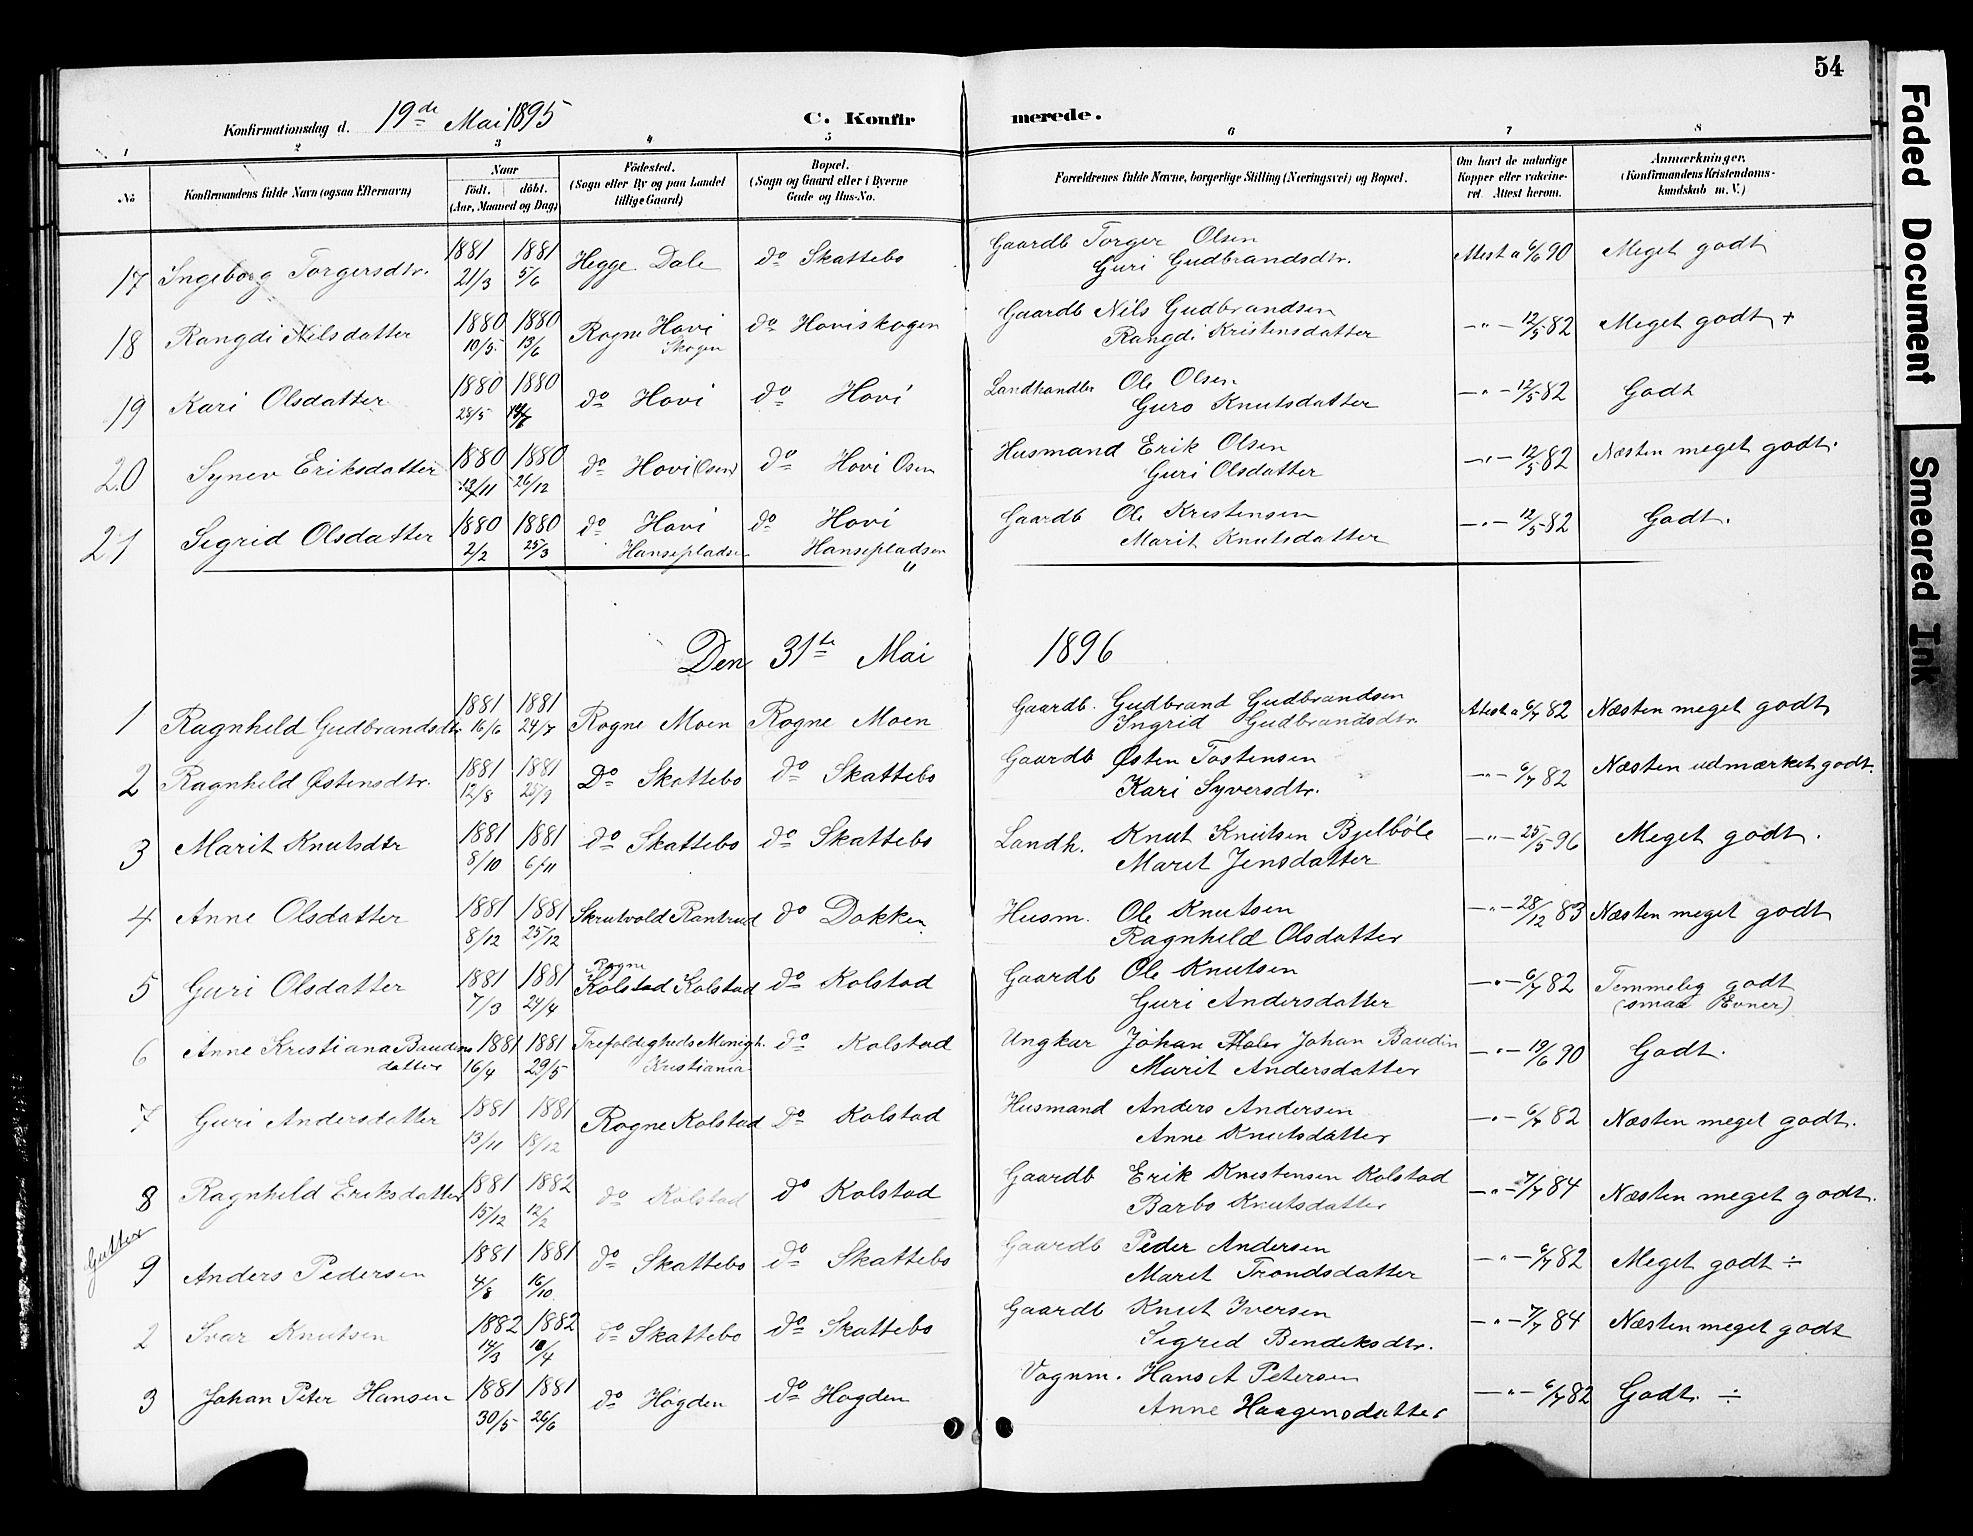 54
Konfirmationsdag d. 19de Mai 1895 C. Konfirmerede.
1 2 3 4 5 6 7 8
No Konfirmandens fulde Navn (ogsaa Efternavn) Naar født. døbt. (Aar, Maaned og Dag) Fødested. (Sogn eller By og paa Landet tillige Gaard) Bopæl. (Sogn og Gaard eller i Byerne Gade og Hus-No. Forældrenes fulde Navne, borgerlige Stilling (Næringsvei) og Bopæl. Om havt de naturlige Kopper eller vaccineret. Attest herom. Anmærkninger. (Konfirmandens Kristendomskundskab m. V.)
17 Ingeborg Torgersdtr. 1881 21/3 1881 5/6 Hegge Dale do Skattebo Gaardb Torger Olsen Guri Gudbrandsdtr. Attest a 6/6 90 Meget godt
18 Rangdi Nilsdatter 1880 10/5 1880 13/6 Rogne Hovi Skogen do Hoviskogen Gaardb Nils Gudbrandsen Rangdi Kristensdatter — " — 12/5 82 Meget godt +
19 Kari Olsdatter 1880 28/5 1880 do Hovi do Hovi Landhandler Ole Olsen Guro Knutsdatter — " — 12/5 82 Godt
20 Synev Eriksdatter 1880 13/11 1880 26/12 do Hovi (Osen) do Hovi Osen Husmand Erik Olsen Guri Olsdatter — " — 12/5 82 Næsten meget godt.
21 Sigrid Olsdatter 1880 2/2 1880 25/3 do Hovi Hansepladsen do Hovi Hansepladsen " Gaardb Ole Kristensen Marit Knutsdatter — " — 12/5 82 Godt.
Den 31te Mai 1896
1 Ragnhild Gudbrandsdtr 1881 16/6 1881 24/7 Rogne Moen Rogne Moen Gaardb. Gudbrand Gudbrandsen Ingrid Gudbrandsdtr. Attest a 6/7 82 Næsten meget godt
2 Ragnhild Østensdtr. 1881 12/8 1881 25/9 Do Skattebo do Skattebo Gaardb Østen Tostensen Kari Syversdtr. — " — 6/7 82 Næsten udmærket godt.
3 Marit Knutsdtr 1881 8/10 1881 6/11 do Skattebo do Skattebo Landh. Knut Knutsen Bjelbøle Marit Jensdatter — " — 25/5 96 Meget godt.
4 Anne Olsdatter 1881 8/12 1881 25/12 Skrutvold Rantrud do Dokken. Husm. Ole Knutsen Ragnhild Olsdatter — " — 28/12 83 Næsten meget godt
5 Guri Olsdatter 1881 7/3 1881 24/4 Rogne Kolstad Kolstad do Kolstad Gaardb Ole Knutsen Guri Andersdatter — " — 6/7 82 Temmelig godt (smaa Evner)
6 Anne Kristiana Baudins datter 1881 16/4 1881 29/5 Trefoldigheds Menigh. Kristiania do Kolstad Ungkar Johan Johan Baudin Marit Andersdatter — " — 19/6 90 Godt.
7 Guri Andersdatter 1881 13/11 1881 18/12 Rogne Kolstad Do Kolstad Husmand Anders Andersen Anne Knutsdatter — " — 6/7 82 Næsten meget godt.
8 Ragnhild Eriksdatter 1881 15/12 1882 12/2 do Kolstad do Kolstad Gaardb Erik Kristensen Kolstad Barbo Knutsdatter — " — 7/7 84 Næsten meget godt.
Gutter
9 Anders Pedersen 1881 4/8 1881 16/10 do Skattebo do Skattebo Gaardb Peder Andersen Marit Trondsdatter — " — 6/7 82 Meget godt ÷
2 Ivar Knutsen 1882 17/3 1882 do Skattebo do Skattebo Gaardb Knut Iversen Sigrid Bendiksdtr. — " — 7/7 84 Næsten meget godt
3 Johan Peter Hansen 1881 30/5 1881 26/6 do Høgden do Høgden Vognm. Hans A Petersen Anne Haagensdatter — " — 6/7 82 Godt. ÷
Faded Document
Smeared Ink